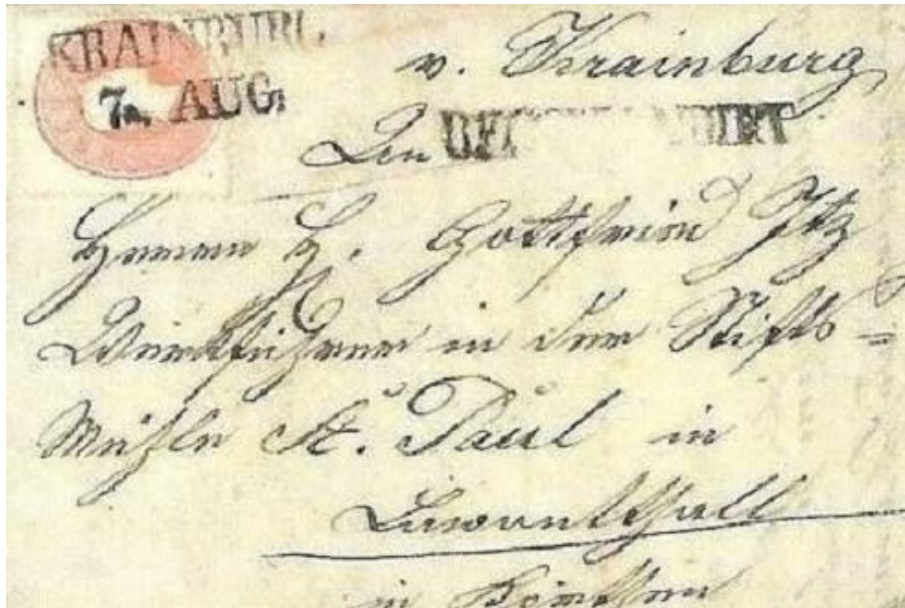 KRAINBURG
7. AUG.
v. Krainburg
An
Herrn H. Gottfried
Werkführer in der Stifts=
Mühle St. Paul in
Lavantthall
in Kärnthen